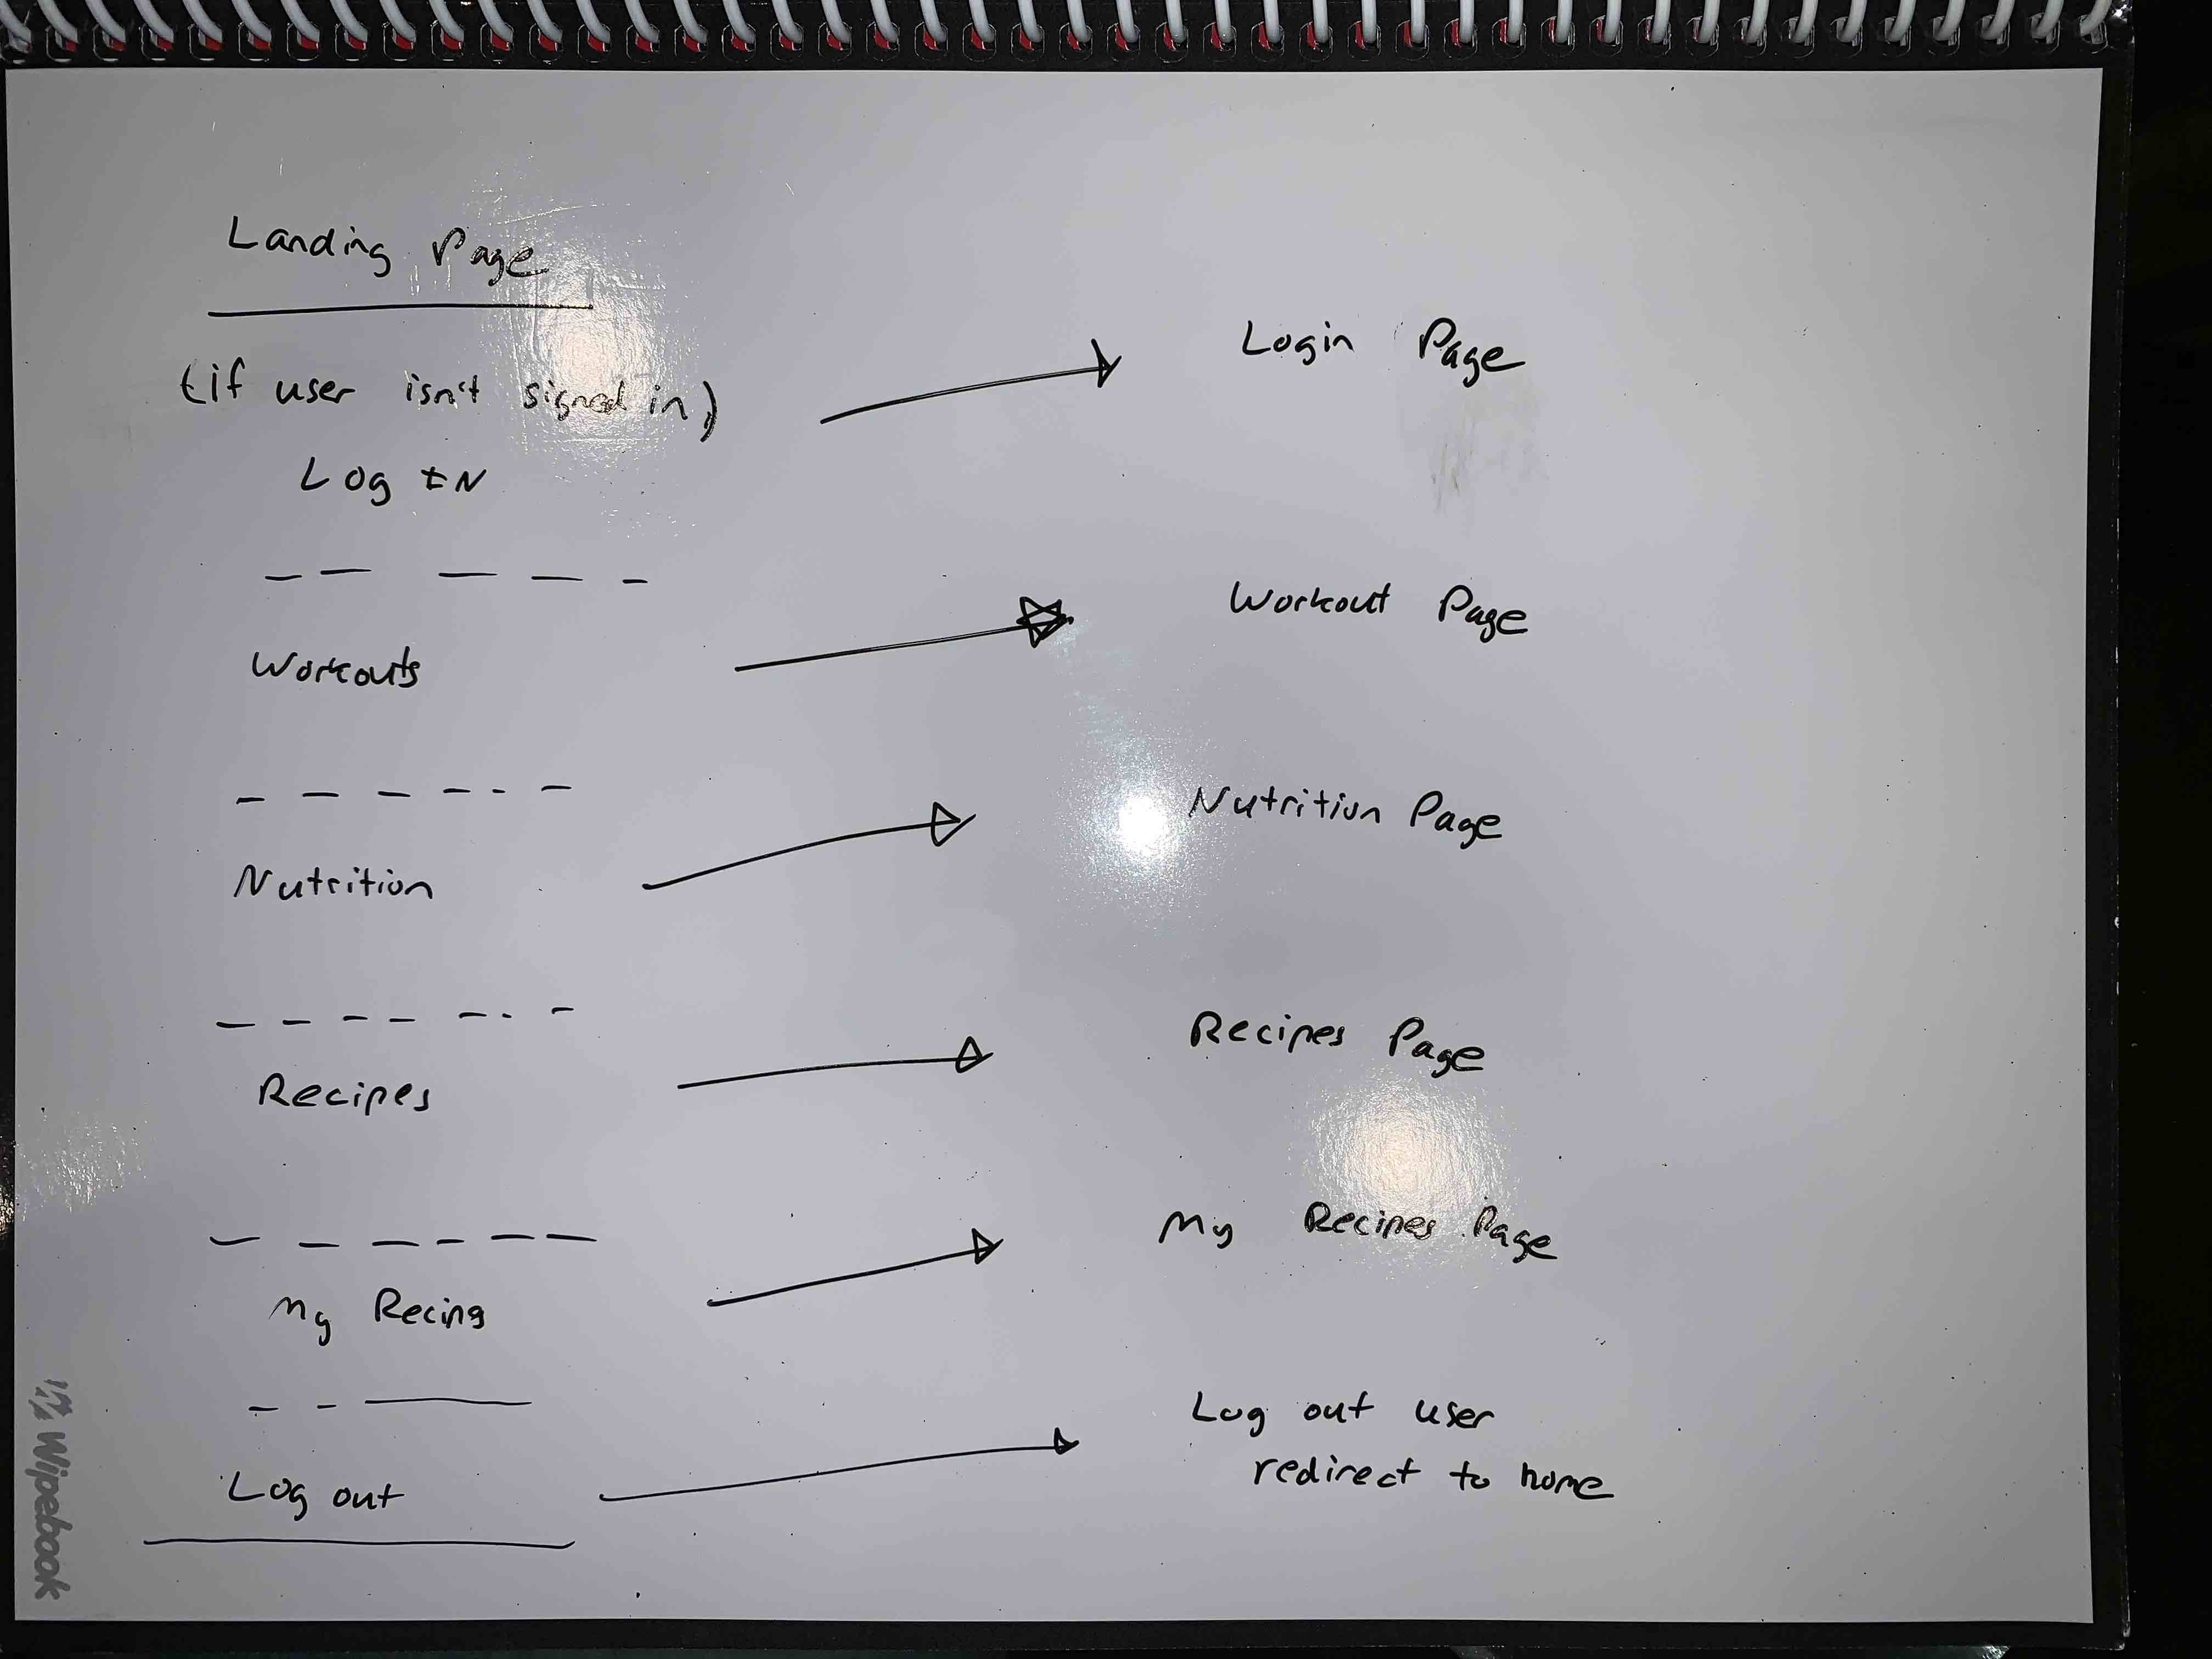 Landing Page
(if user isn't signed in)
Log IN
Login Page
Workouts
Workout Page
Nutrition
Nutrition Page
Recipes
Recipes Page
My Recipes
My Recipes Page
Log out
Log out user
redirect to home
Wipebook